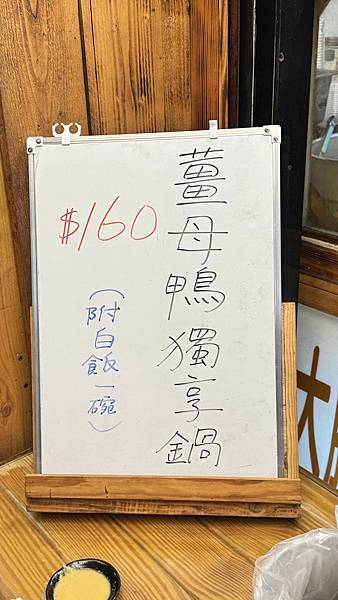 薑母鴨獨享鍋
$160
(附白飯一碗)